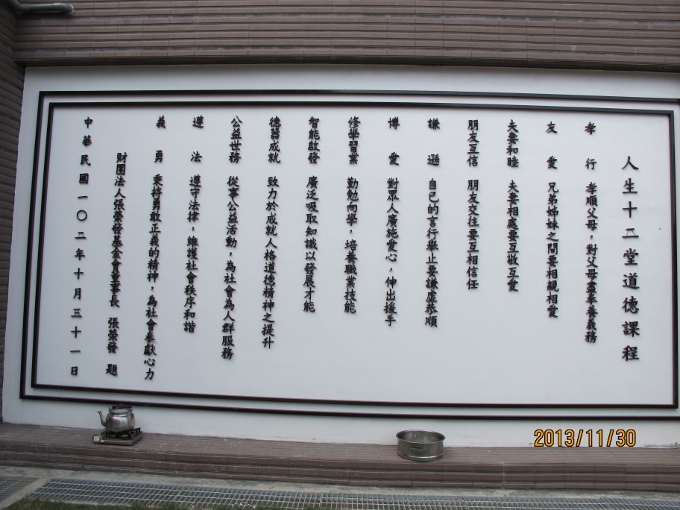 人生十二堂道德課程
孝行 孝順父母,對父母盡奉養義務
友愛 兄弟姊妹之間要相親相愛
夫妻和睦 夫妻相處要互敬互愛
朋友互信 朋友交往要互相信任
謙遜 自己的言行舉止要謙虛恭順
博愛 對眾人廣施愛心,伸出援手
修學習業 勤勉向學,培養職業技能
智能啟發 廣泛吸取知識以發展才能
德器成就 致力於成就人格道德精神之提升
公益世務 從事公益活動,為社會為人群服務
遵法 遵守法律,維護社會秩序和諧
義勇 秉持勇敢正義的精神,為社會奉獻心力
財團法人張榮發基金會董事長 張榮發 題
中華民國一〇二年十月三十一日
2013/11/30